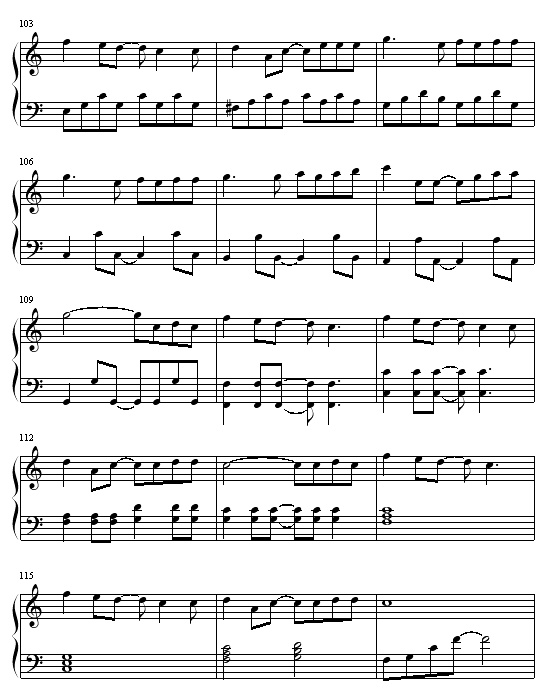 103
106
109
112
115